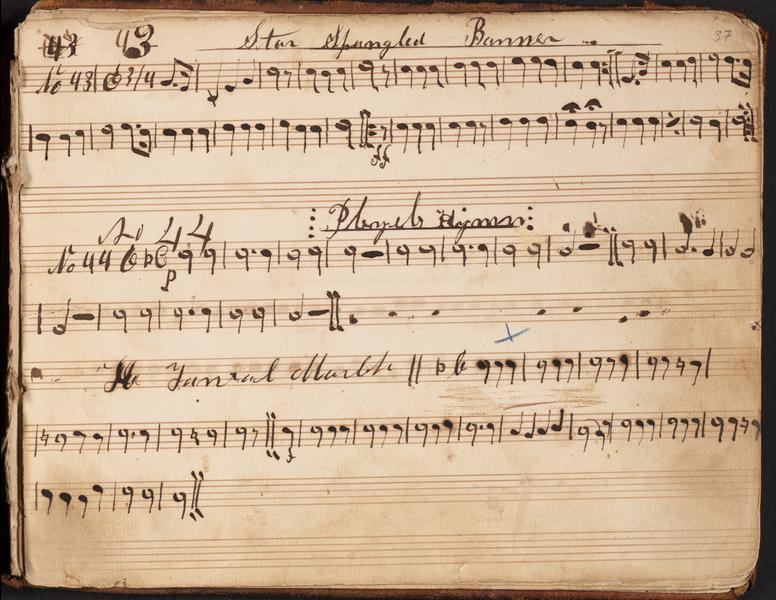 43 43 Star Spangled Banner 37
No 43 3/4
ff
No 44 Pleyels Hymn
No 44 C
p
March